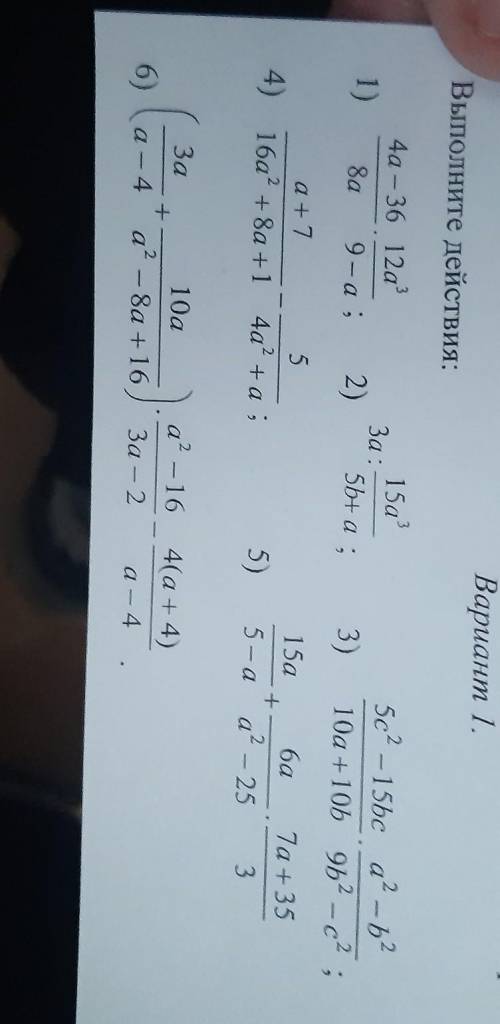 Вариант 1.
Выполните действия:
1) \frac{4a-36}{8a} \cdot \frac{12a^3}{9-a}; 2) 3a : \frac{15a^3}{5b+a}; 3) \frac{5c^2-15bc}{10a+10b} \cdot \frac{a^2-b^2}{9b^2-c^2};
4) \frac{a+7}{16a^2+8a+1} - \frac{5}{4a^2+a}; 5) \frac{15a}{5-a} + \frac{6a}{a^2-25} \cdot \frac{7a+35}{3}
6) \left( \frac{3a}{a-4} + \frac{10a}{a^2-8a+16} \right) \cdot \frac{a^2-16}{3a-2} - \frac{4(a+4)}{a-4}.